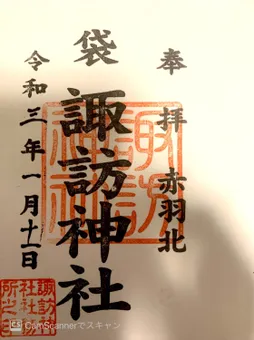 奉拝 赤羽北
袋
諏訪神社
令和三年一月十一日
諏訪神社
諏訪神社社務所之印
CamScannerでスキャン